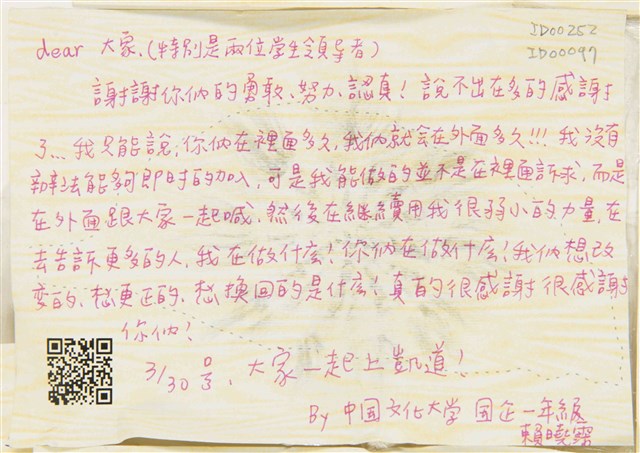 ID00252
ID00097
dear 大家.(特別是兩位學生領导者)
謝謝你們的勇敢、努力、認真！說不出在多的感謝
了...我只能說,你們在裡面多久,我們就会在外面多久!!!我沒有
辦法能夠即时的加入,可是我能做的並不是在裡面訴求,而是
在外面跟大家一起喊、然後在継續用我很弱小的力量,在
去告訴更多的人,我在做什么！你們在做什么！我們想改
变的、想更正的、想換回的是什么、真的很感謝很感謝
你們！
3/30号、大家一起上凱道！
By 中国文化大学 国企一年級
賴曉